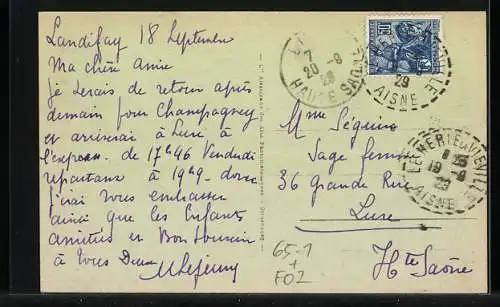 Landifay 18 Septembre
Ma chère amie
Je serais de retour après
demain pour Champagney
et arriverai à Lure à
l'express de 17h46 Vendredi
repartant à 19h9 donc
j'irai vous embrasser
ainsi que les Enfants
amitiés et Bon Souvenir
à Vous Deux
Mme Séguin
Sage femme
36 Grande Rue
Lure
Hte Saône
65-1
+
FOZ
7
20 -9
29
HAUTE SAONE
50
29
AISNE
19 -9
29
AISNE